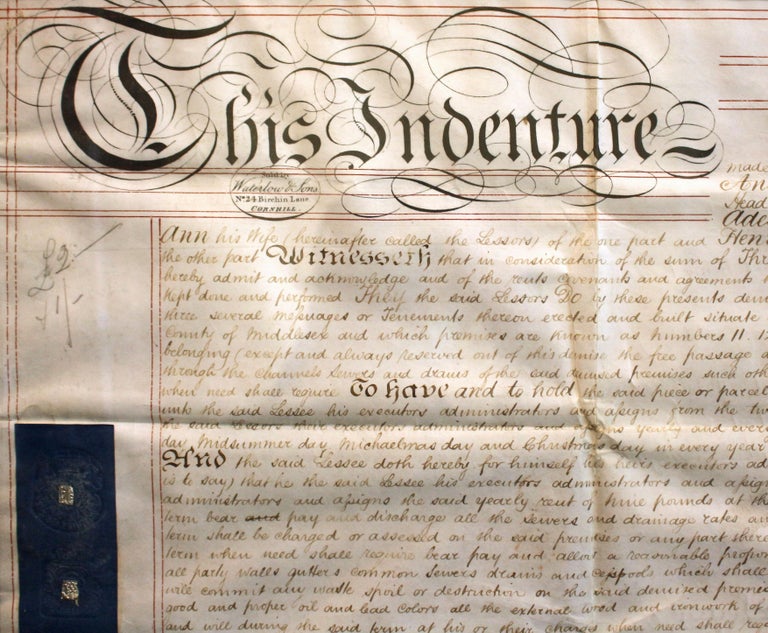 This Indenture
made
An
Head
Ade
Hen
Sold by
Waterlow & Sons
No 24 Birchin Lane
CORNHILL.
£2
11/-
Ann his Wife (hereinafter called the Lessors) of the one part and
the other part Witnesseth that in consideration of the sum of Thr
hereby admit and acknowledge and of the rents covenants and agreements
kept done and performed They the said Lessors Do by these presents dem
three several Messuages or Tenements thereon erected and built situate
County of Middlesex and which premises are known as numbers 11. 12
belonging (except and always reserved out of this demise the free passage
through the Channels Sewers and drains of the said demised premises such oth
when need shall require To have and to hold the said piece or parcel
unto the said Lessee his executors administrators and assigns from the tw
the said Lessors their executors administrators and assigns yearly and every
day Midsummer day Michaelmas day and Christmas day in every year
And the said Lessee doth hereby for himself his heirs executors ad
is to say) that he the said Lessee his executors administrators and assign
administrators and assigns the said yearly rent of nine pounds at th
term bear and pay and discharge all the Sewers and drainage rates an
term shall be charged or assessed on the said premises or any part there
term when need shall require bear pay and allow a reasonable propor
all party walls gutters common sewers drains and cesspools which shall
will commit any waste spoil or destruction on the said demised premis
good and proper oil and lead colors all the external wood and ironwork of
and will during the said term at his or their charges when need shall